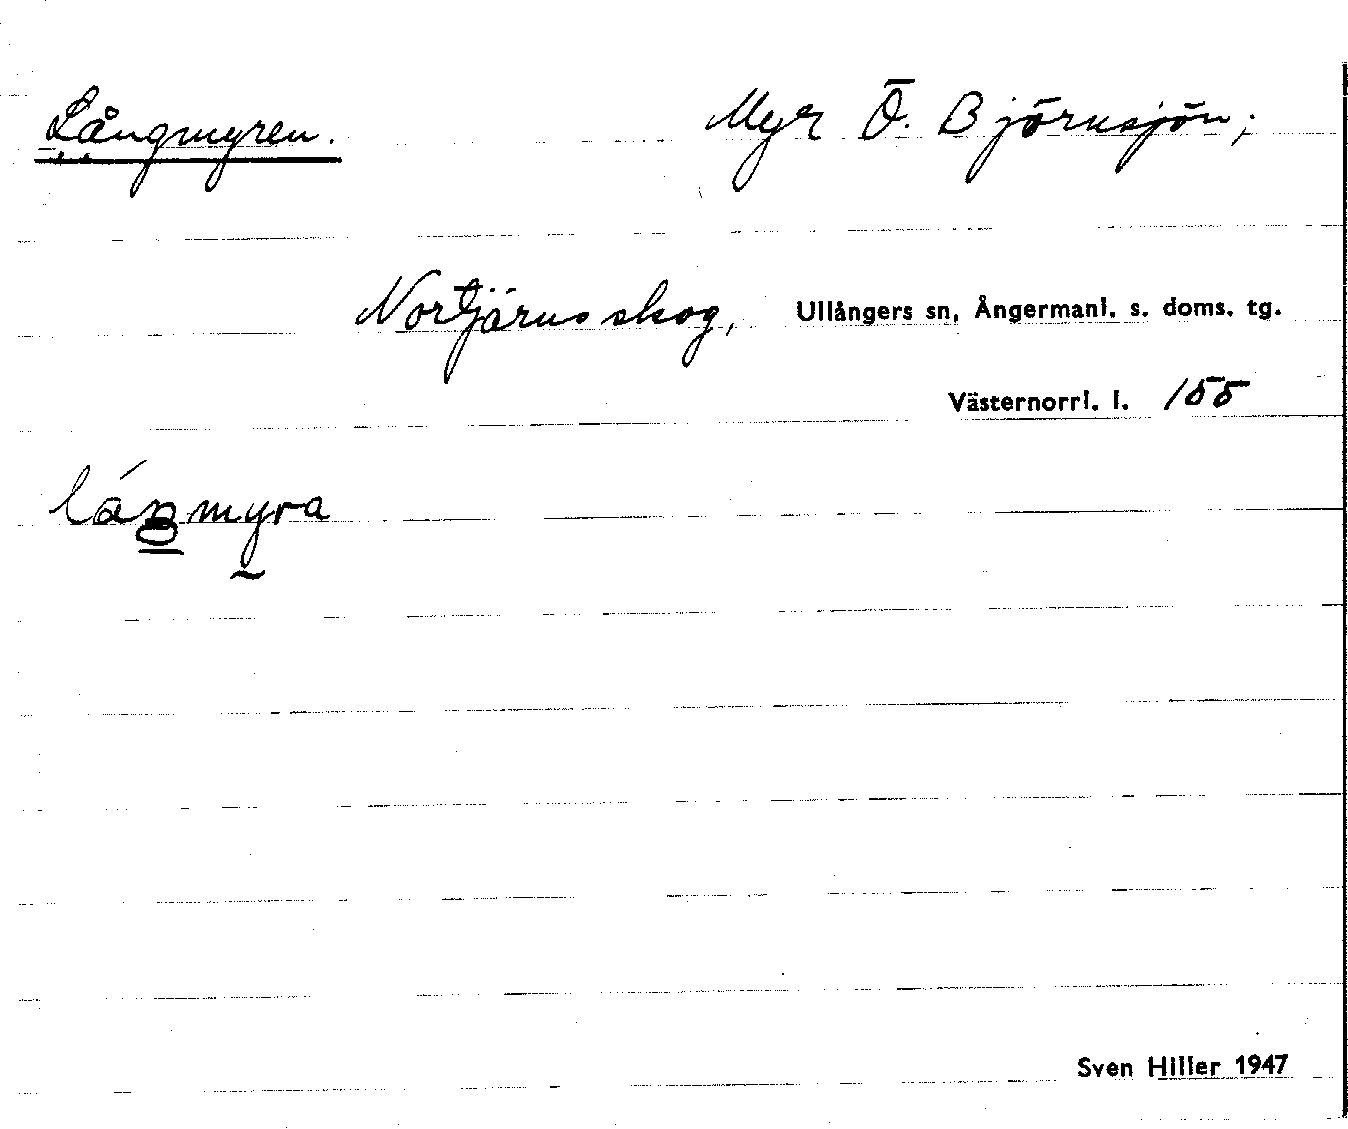 Långmyren. Myr Ö. Björnsjön;
Nortjärns skog, Ullångers sn, Ångermanl. s. doms. tg.
Västernorrl. l. 155
lánmyra
Sven Hiller 1947